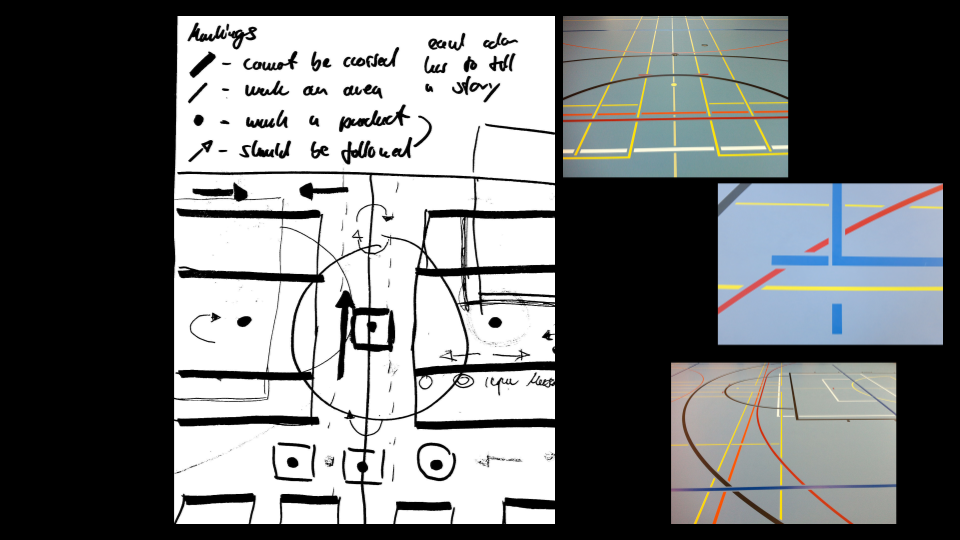 Markings
- cannot be crossed
- mark an area
- mark a product
- should be followed
each color
has to tell
a story